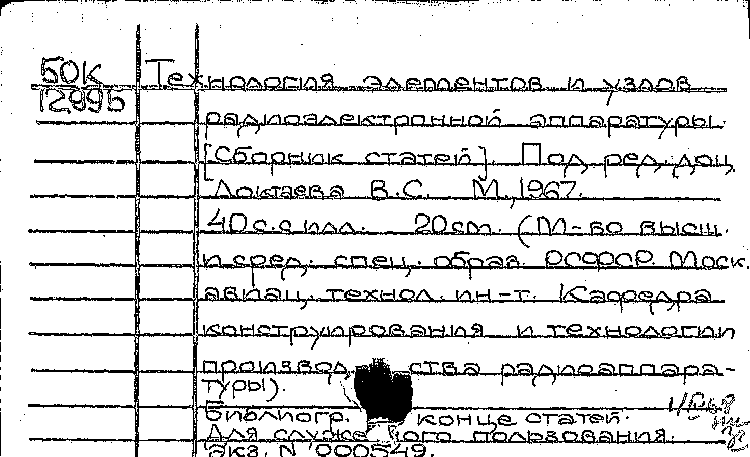 50К Технология элементов и узлов
12995 радиоэлектронной аппаратуры.
[Сборник статей]. Под. ред. доц.
Локтаева В.С. М., 1967.
40 с. с илл. 20 см. (М-во высш.
и сред. спец. образ. РСФСР. Моск.
авиац. технол. ин-т. Кафедра
конструирования и технологии
производ ства радиоаппара-
туры).
Библиогр. конце статей.
Для служе ного пользования.
Экз. N 000549.